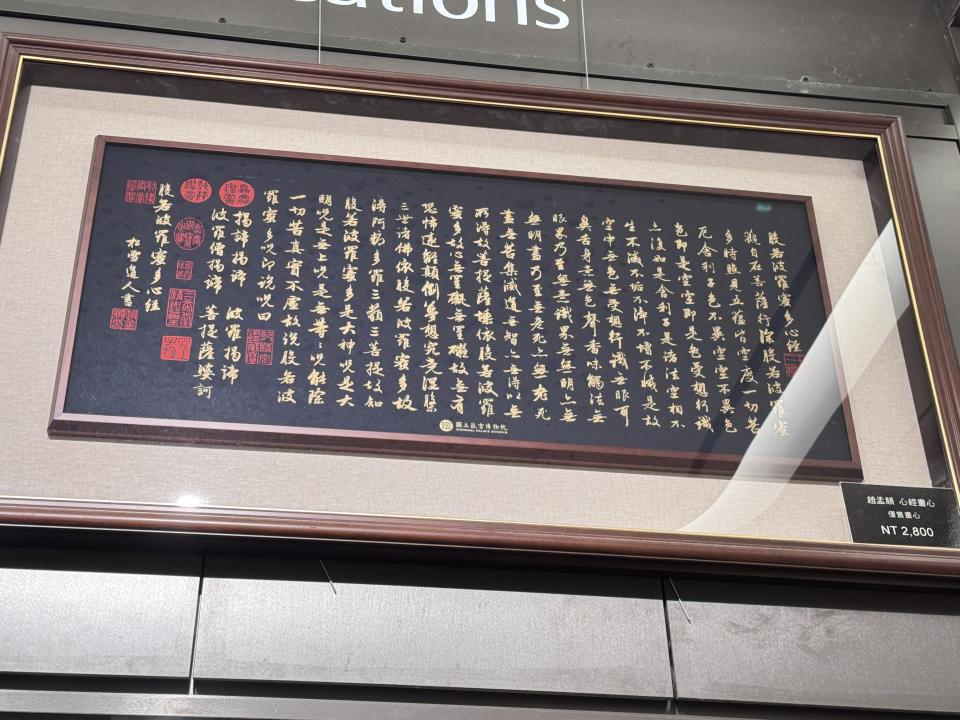 cations
般若波羅蜜多心經
觀自在菩薩行深般若波羅蜜
多時照見五蘊皆空度一切苦
厄舍利子色不異空空不異色
色即是空空即是色受想行識
亦復如是舍利子是諸法空相不
生不滅不垢不淨不增不減是故
空中無色無受想行識無眼耳
鼻舌身意無色聲香味觸法無
眼界乃至無意識界無無明亦無
無明盡乃至無老死亦無老死
盡無苦集滅道無智亦無得以無
所得故菩提薩埵依般若波羅
蜜多故心無罣礙無罣礙故無有
恐怖遠離顛倒夢想究竟涅槃
三世諸佛依般若波羅蜜多故
得阿耨多羅三藐三菩提故知
般若波羅蜜多是大神咒是大
明咒是無上咒是無等等咒能除
一切苦真實不虛故說般若波
羅蜜多咒即說咒曰
揭諦揭諦 波羅揭諦
波羅僧揭諦 菩提薩婆訶
般若波羅蜜多心經
松雪道人書
國立故宮博物院
NATIONAL PALACE MUSEUM
趙孟頫 心經畫心
僅售畫心
NT 2,800